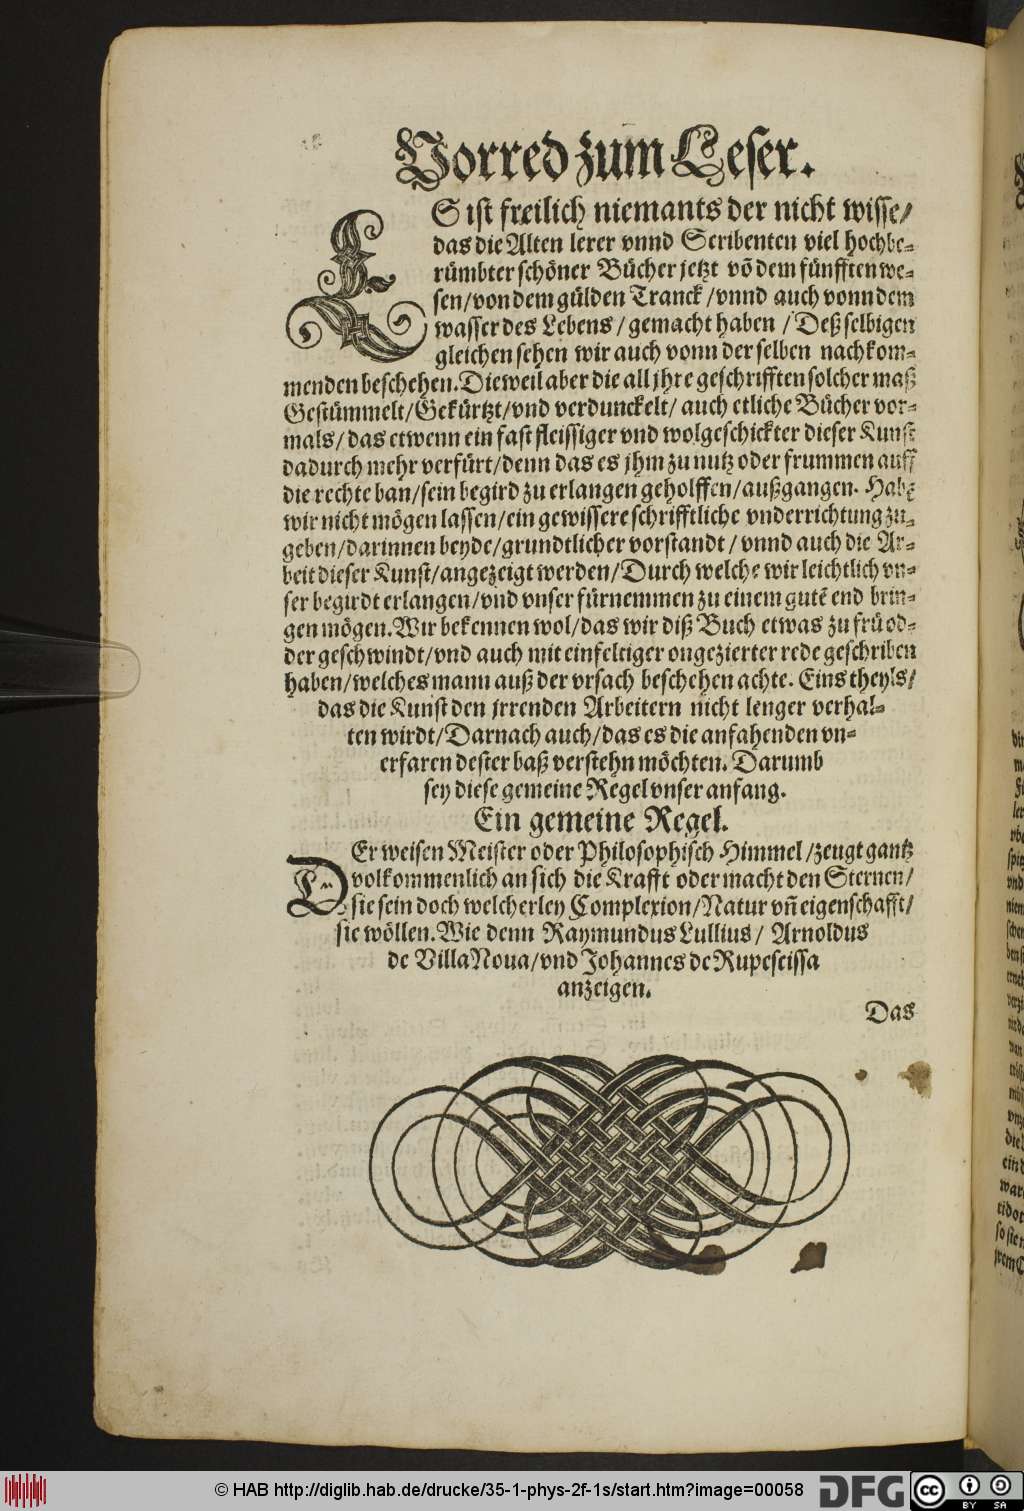 Vorred zum Leser.
ES ist freilich niemants der nicht wisse/
das die Alten lerer vnnd Scribenten viel hochbe-
rümbter schöner Bücher jetzt võ dem fünfften we-
sen/von dem gülden Tranck/vnnd auch vonn dem
wasser des Lebens/gemacht haben/Deß selbigen
gleichen sehen wir auch vonn der selben nachkom-
menden beschehen. Dieweil aber die all jhre geschrifften solcher maß
Gestümmelt/Gekürtzt/vnd verdunckelt/auch etliche Bücher vor-
mals/das etwenn ein fast fleissiger vnd wolgeschickter dieser Kunst
dadurch mehr verfürt/denn das es jhm zu nutz oder frummen auff
die rechte ban/sein begird zu erlangen geholffen/außgangen. Habe
wir nicht mögen lassen/ein gewissere schrifftliche vnderrichtung zu-
geben/darinnen beyde/grundtlicher vorstandt/vnnd auch die Ar-
beit dieser Kunst/angezeigt werden/Durch welche wir leichtlich vn-
ser begirdt erlangen/vnd vnser fürnemmen zu einem gutē end brin-
gen mögen. Wir bekennen wol/das wir diß Buch etwas zu frü od-
der geschwindt/vnd auch mit einfeltiger ongezierter rede geschriben
haben/welches mann auß der vrsach beschehen achte. Eins theyls/
das die Kunst den jrrenden Arbeitern nicht lenger verhal-
ten wirdt/Darnach auch/das es die anfahenden vn-
erfaren dester baß verstehn möchten. Darumb
sey diese gemeine Regel vnser anfang.
Ein gemeine Regel.
DEr weisen Meister oder Philosophisch Himmel/zeugt gantz
volkommenlich an sich die Krafft oder macht den Sternen/
sie sein doch welcherley Complexion/Natur vñ eigenschafft/
sie wöllen. Wie denn Raymundus Lullius/Arnoldus
de Villa Noua/vnd Johannes de Rupescissa
anzeigen.
Das
© HAB http://diglib.hab.de/drucke/35-1-phys-2f-1s/start.htm?image=00058
DFG
cc
BY SA